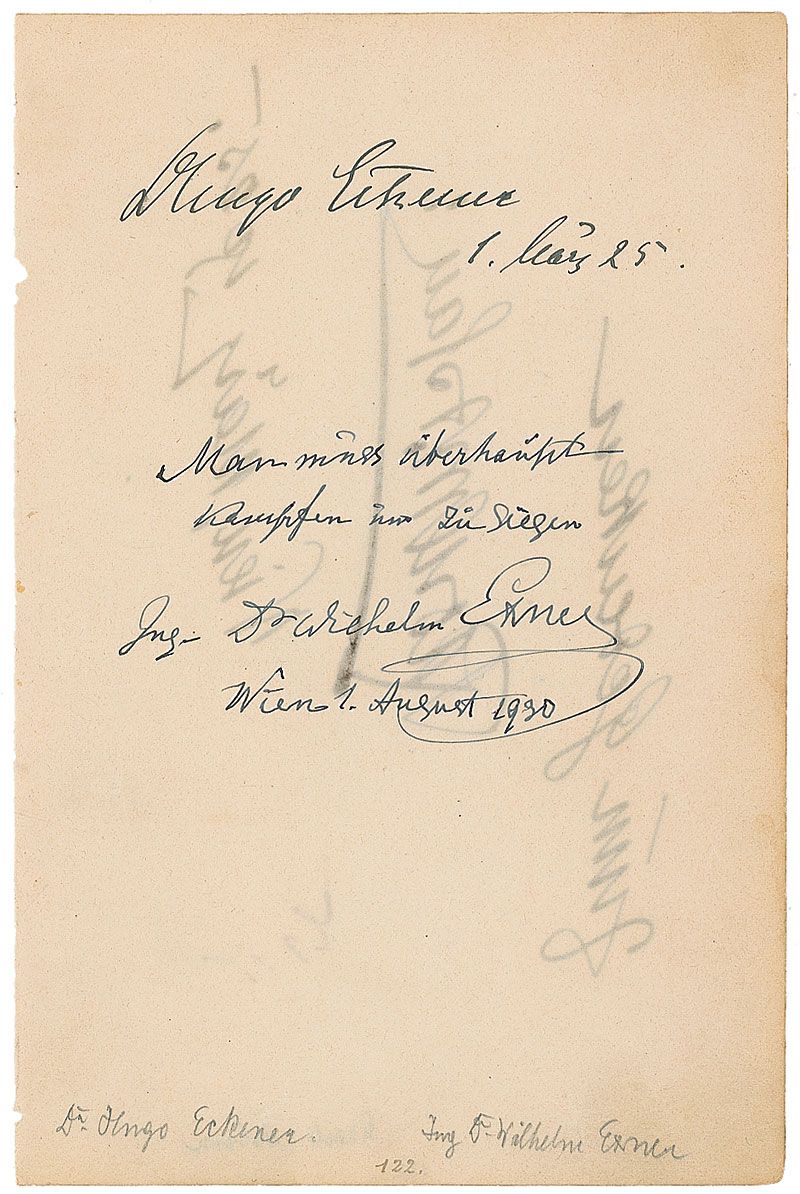 Dr Hugo Eckener
1. März 25.
Man muss überhaupt
kämpfen um zu siegen
Ing. Dr Wilhelm Exner
Wien 1. August 1930
Dr. Hugo Eckener.
Ing Dr Wilhelm Exner
122.